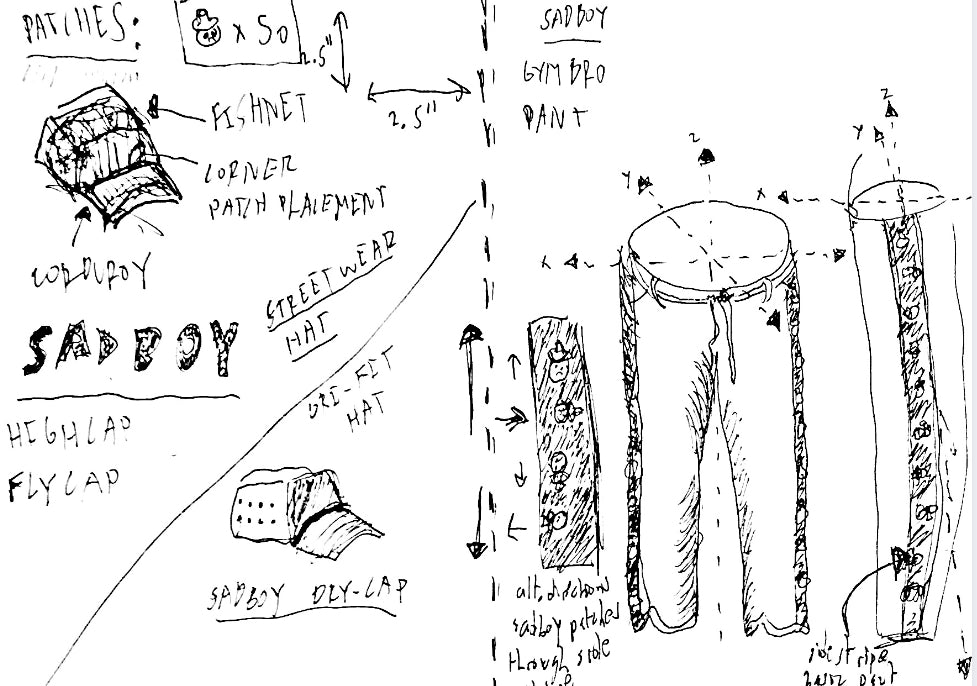 PATCHES:
x 50
2.5"
2.5"
FISHNET
CORNER
PATCH PLACEMENT
CORDUROY
STREETWEAR
HAT
SADBOY
HIGHCAP
FLYCAP
DRI-FIT
HAT
SADBOY DRY-CAP
SADBOY
GYM BRO
PANT
Z
Y
X
Z
Y
X
alt. directions
sadboy patches
through side
side stripe